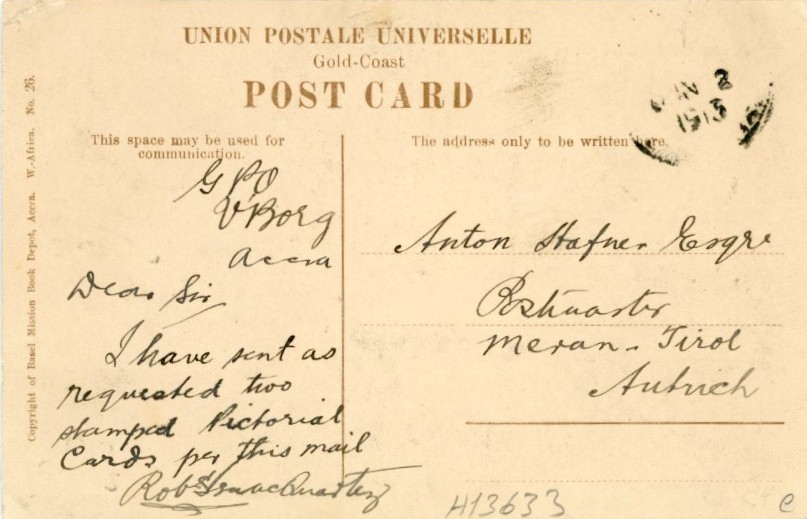 UNION POSTALE UNIVERSELLE
Gold-Coast
POST CARD
This space may be used for
communication.
The address only to be written here.
JAN 2
1913
G PO
V'Borg
Accra
Dear Sir
I have sent as
requested two
stamped Pictorial
Cards per this mail
Robt Isaac Quartey
Anton Hafner Esqre
Postmaster
Meran - Tirol
Autrich
H13633
e
Copyright of Basel Mission Book Depot, Accra. W.-Africa. No. 26.